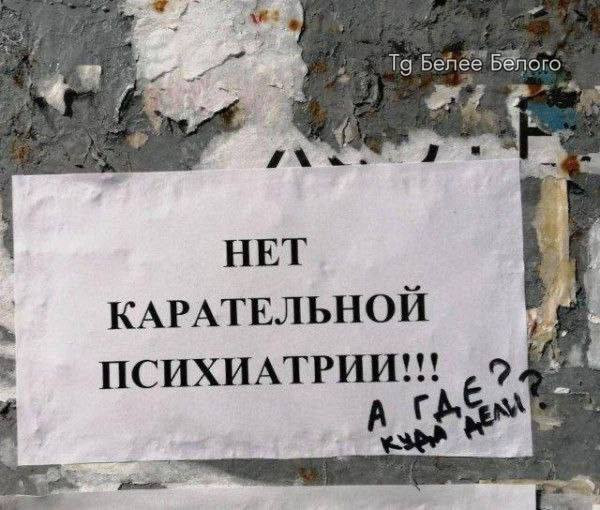 Tg Белее Белого
НЕТ
КАРАТЕЛЬНОЙ
ПСИХИАТРИИ!!!
А ГДЕ?
КУДА ДЕЛИ?